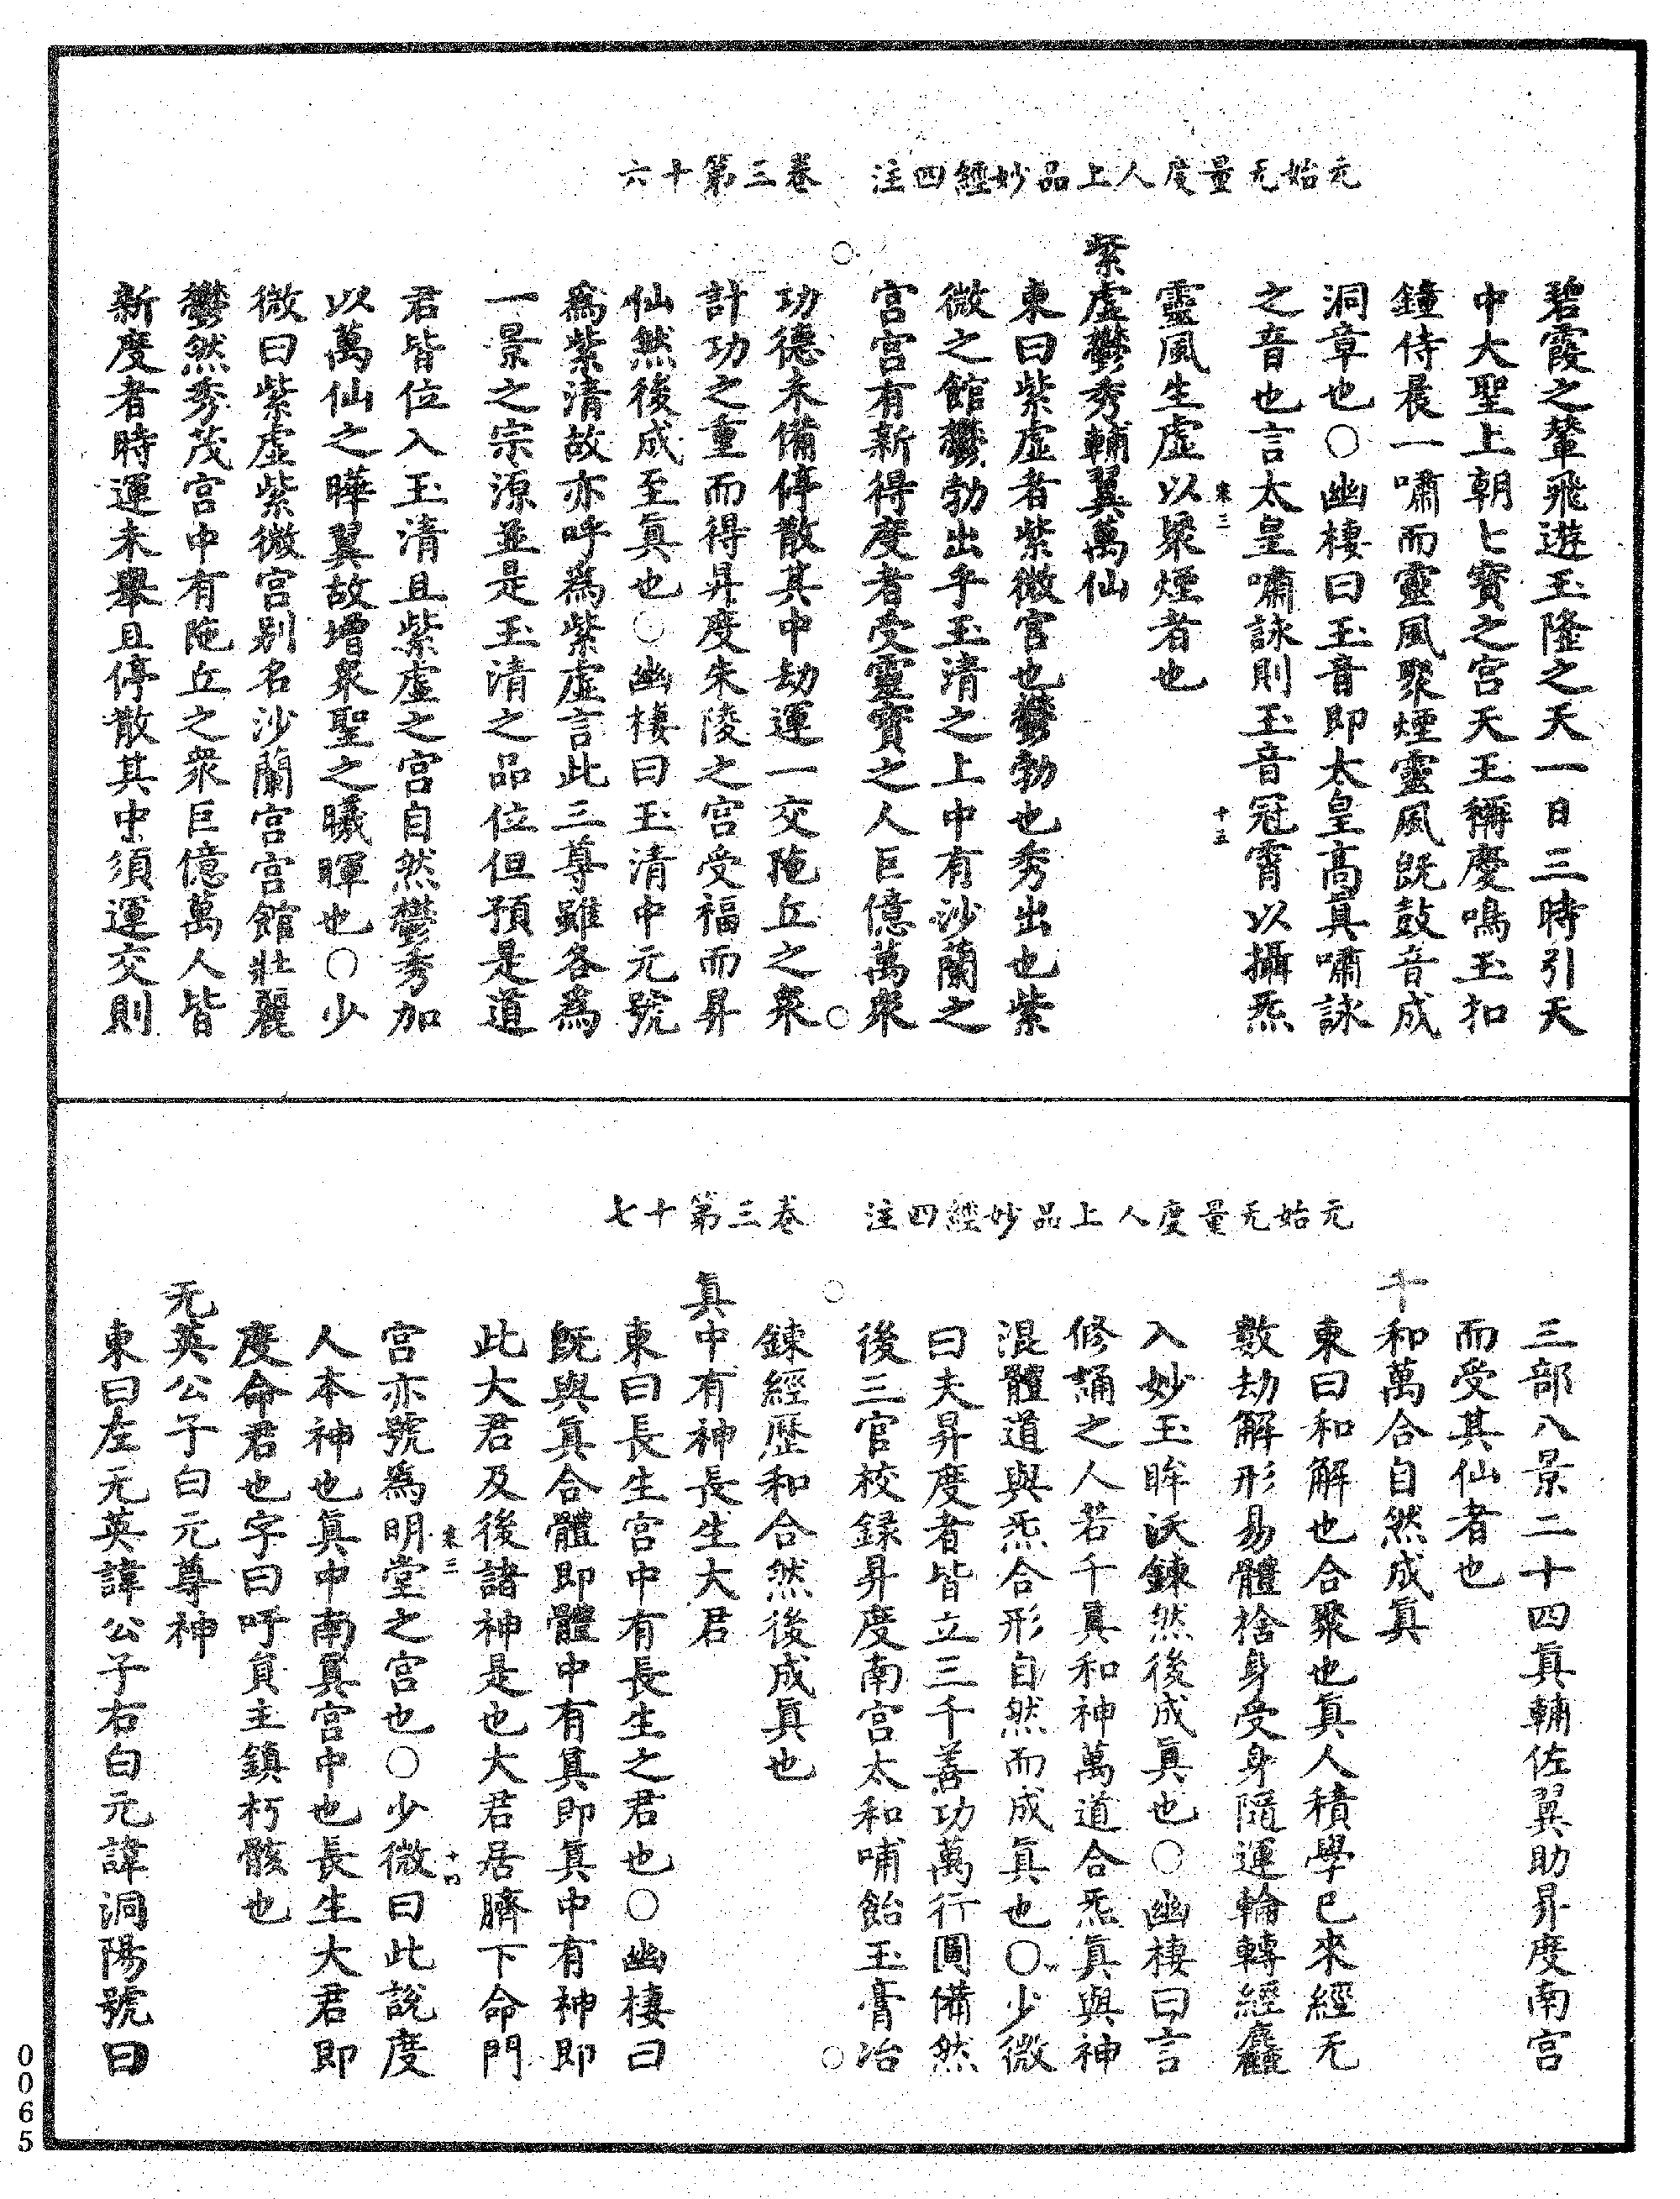 元始无量度人上品妙經四注　卷三第十六
碧霞之輦飛遊玉隆之天一日三時引天
中大聖上朝七寶之宮天王稱慶鳴玉扣
鐘侍晨一嘯而靈風聚煙靈風既鼓音成
洞章也○幽棲曰玉音即太皇高真嘯詠
之音也言太皇嘯詠則玉音冠霄以攝炁
來三　十五
靈風生虛以聚煙者也
紫虛鬱秀輔翼萬仙
東曰紫虛者紫微宮也鬱勃也秀出也紫
微之館鬱勃出乎玉清之上中有沙蘭之
宮宮有新得度者受靈寶之人巨億萬眾
功德未備停散其中劫運一交陁丘之眾
計功之重而得昇度朱陵之宮受福而昇
仙然後成至真也○幽棲曰玉清中元號
為紫清故亦呼為紫虛言此三尊雖各為
一景之宗源並是玉清之品位但預是道
君皆位入玉清且紫虛之宮自然鬱秀加
以萬仙之曄翼故增眾聖之曦暉也○少
微曰紫虛紫微宮別名沙蘭宮宮館壯麗
鬱然秀茂宮中有陁丘之眾巨億萬人皆
新度者時運未舉且停散其中須運交則
元始无量度人上品妙經四注　卷三第十七
三部八景二十四真輔佐翼助昇度南宮
而受其仙者也
千和萬合自然成真
東曰和解也合聚也真人積學已來經无
數劫解形易體捨身受身隨運輪轉經麤
入妙玉眸沃鍊然後成真也○幽棲曰言
修誦之人若千真和神萬道合炁真與神
混體道與炁合形自然而成真也○少微
曰夫昇度者皆立三千善功萬行圓備然
後三官校錄昇度南宮太和哺飴玉膏冶
鍊經歷和合然後成真也
真中有神長生大君
東曰長生宮中有長生之君也○幽棲曰
既與真合體即體中有真即真中有神即
此大君及後諸神是也大君居臍下命門
來三　十四
宮亦號為明堂之宮也○少微曰此說度
人本神也真中南真宮中也長生大君即
度命君也字曰呼負主鎮朽骸也
无英公子白元尊神
東曰左无英諱公子右白元諱洞陽號曰
0065